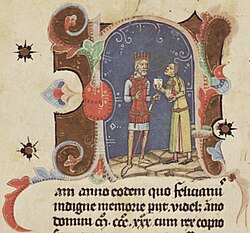 am anno eodem quo felicianus
indigne memorie put. videl: āno
domini m̄. ccc. xxx. cum rex copio